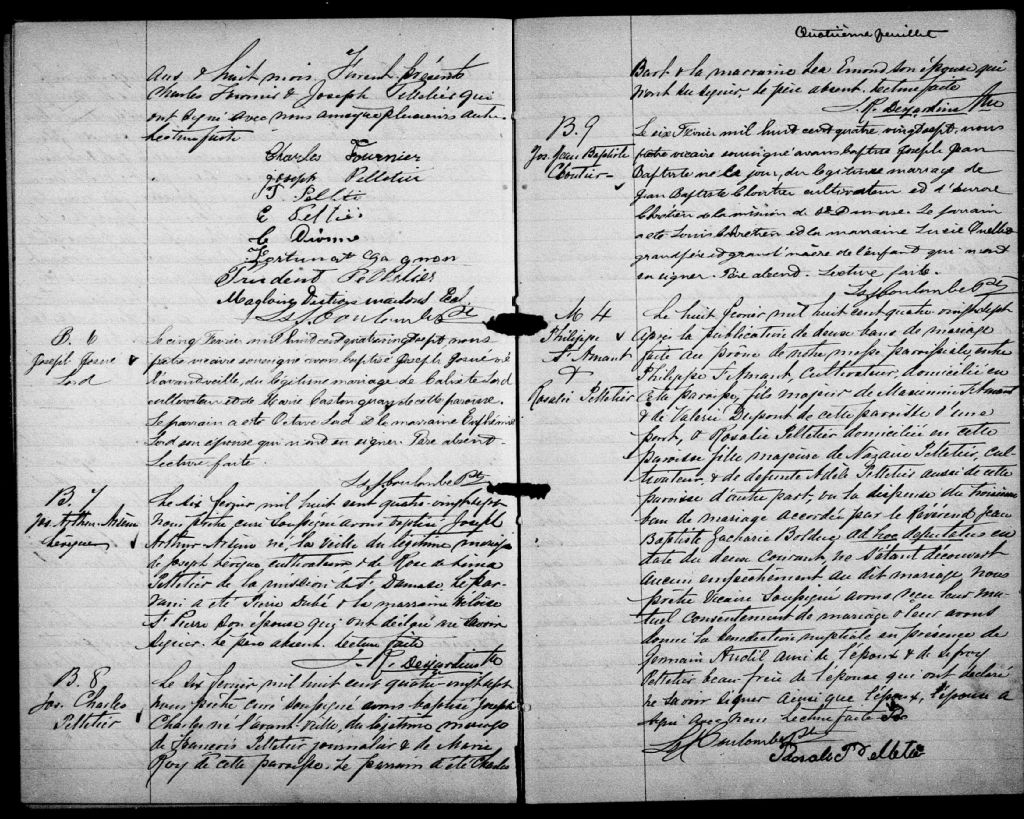 ans & huit mois. Furent présents
Charles Fournier & Joseph Pelletier qui
ont signé avec nous ainsi que plusieurs autres
Lecture faite
Charles Fournier
Joseph Pelletier
J. Pelltié
E Peltier
C Dionne
Fortunat Gagnon
Prudent Pelletier
Magloire
Ls S Coulombe Ptr
B. 6
Joseph Josué
Lord
Le cinq Février mil huit cent quatre vingt sept nous
prêtre vicaire soussigné avons baptisé Joseph Josué né
l'avant veille, du légitime mariage de Calixte Lord
cultivateur et de Marie Castonguay de cette paroisse.
Le parrain a été Octave Lord et la marraine Euphémie
Lord son épouse qui n'ont su signer. Père absent.
Lecture faite.
Ls S Coulombe Ptr
B. 7
Jos. Arthur Arsène
Levêque
Le six février mil huit cent quatre vingt sept
Nous prêtre curé soussigné avons baptisé Joseph
Arthur Arsène né, la veille du légitime mariage
de Joseph Levêque, cultivateur & de Rose de Lima
Pelletier de la mission de St Damase. Le par-
rain a été Pierre Dubé & la marraine Héloïse
St Pierre son épouse qui ont déclaré ne savoir
signer. Le père absent. Lecture faite
J. R. Desjardins Ptre
B. 8
Jos. Charles
Pelletier
Le six février mil huit cent quatre-vingt sept
nous prêtre curé soussigné avons baptisé Joseph
Charles né l'avant-veille, du légitime mariage
de François Pelletier journalier & de Marie
Roy de cette paroisse. Le parrain a été Charles
Quatrième feuillet
Bart & la marraine Lea Emond son épouse qui
n'ont su signer. Le père absent. Lecture faite
J. R. Desjardins Ptre
B. 9
Jos. Jean Baptiste
Cloutier
Le six Février mil huit cent quatre vingt sept, nous
prêtre vicaire soussigné avons baptisé Joseph Jean
Baptiste né ce jour, du légitime mariage de
Jean Baptiste Cloutier cultivateur et d'Aurore
Chrétien de la mission de St Damase. Le parrain
a été Louis Chrétien et la marraine Lucie Ouellet
grand père et grand'mère de l'enfant qui n'ont
su signer. Père absent. Lecture faite.
Ls S Coulombe Ptr
M 4
Philippe
St Amant
&
Rosalie Pelletier
Le huit Février mil huit cent quatre vingt sept
Après la publication de deux bans de mariage
faite au prône de notre messe paroissiale, entre
Philippe St Amant, Cultivateur, domicilié en
cette paroisse, fils majeur de Maximin St Amant
& de Valérie Dupont de cette paroisse d'une
part, & Rosalie Pelletier domiciliée en cette
paroisse fille majeure de Nazaire Pelletier, cul-
tivateur, & de défunte Adèle Pelletier aussi de cette
paroisse d'autre part, vu la dispense du troisième
ban de mariage accordée par le Révérend Jean
Baptiste Zacharie Bolduc ad hoc deputatus en
date du deux courant, ne s'étant découvert
aucun empêchement au dit mariage, Nous
prêtre Vicaire Soussigné avons reçu leur mu-
tuel consentement de mariage & leur avons
donné la bénédiction nuptiale en présence de
Germain Anctil ami de l'époux & de
Pelletier beau frère de l'épouse qui ont déclaré
ne savoir signer ainsi que l'époux, l'épouse a
signé avec nous Lecture faite
Ls S Coulombe Ptr
Rosalie Pelletie